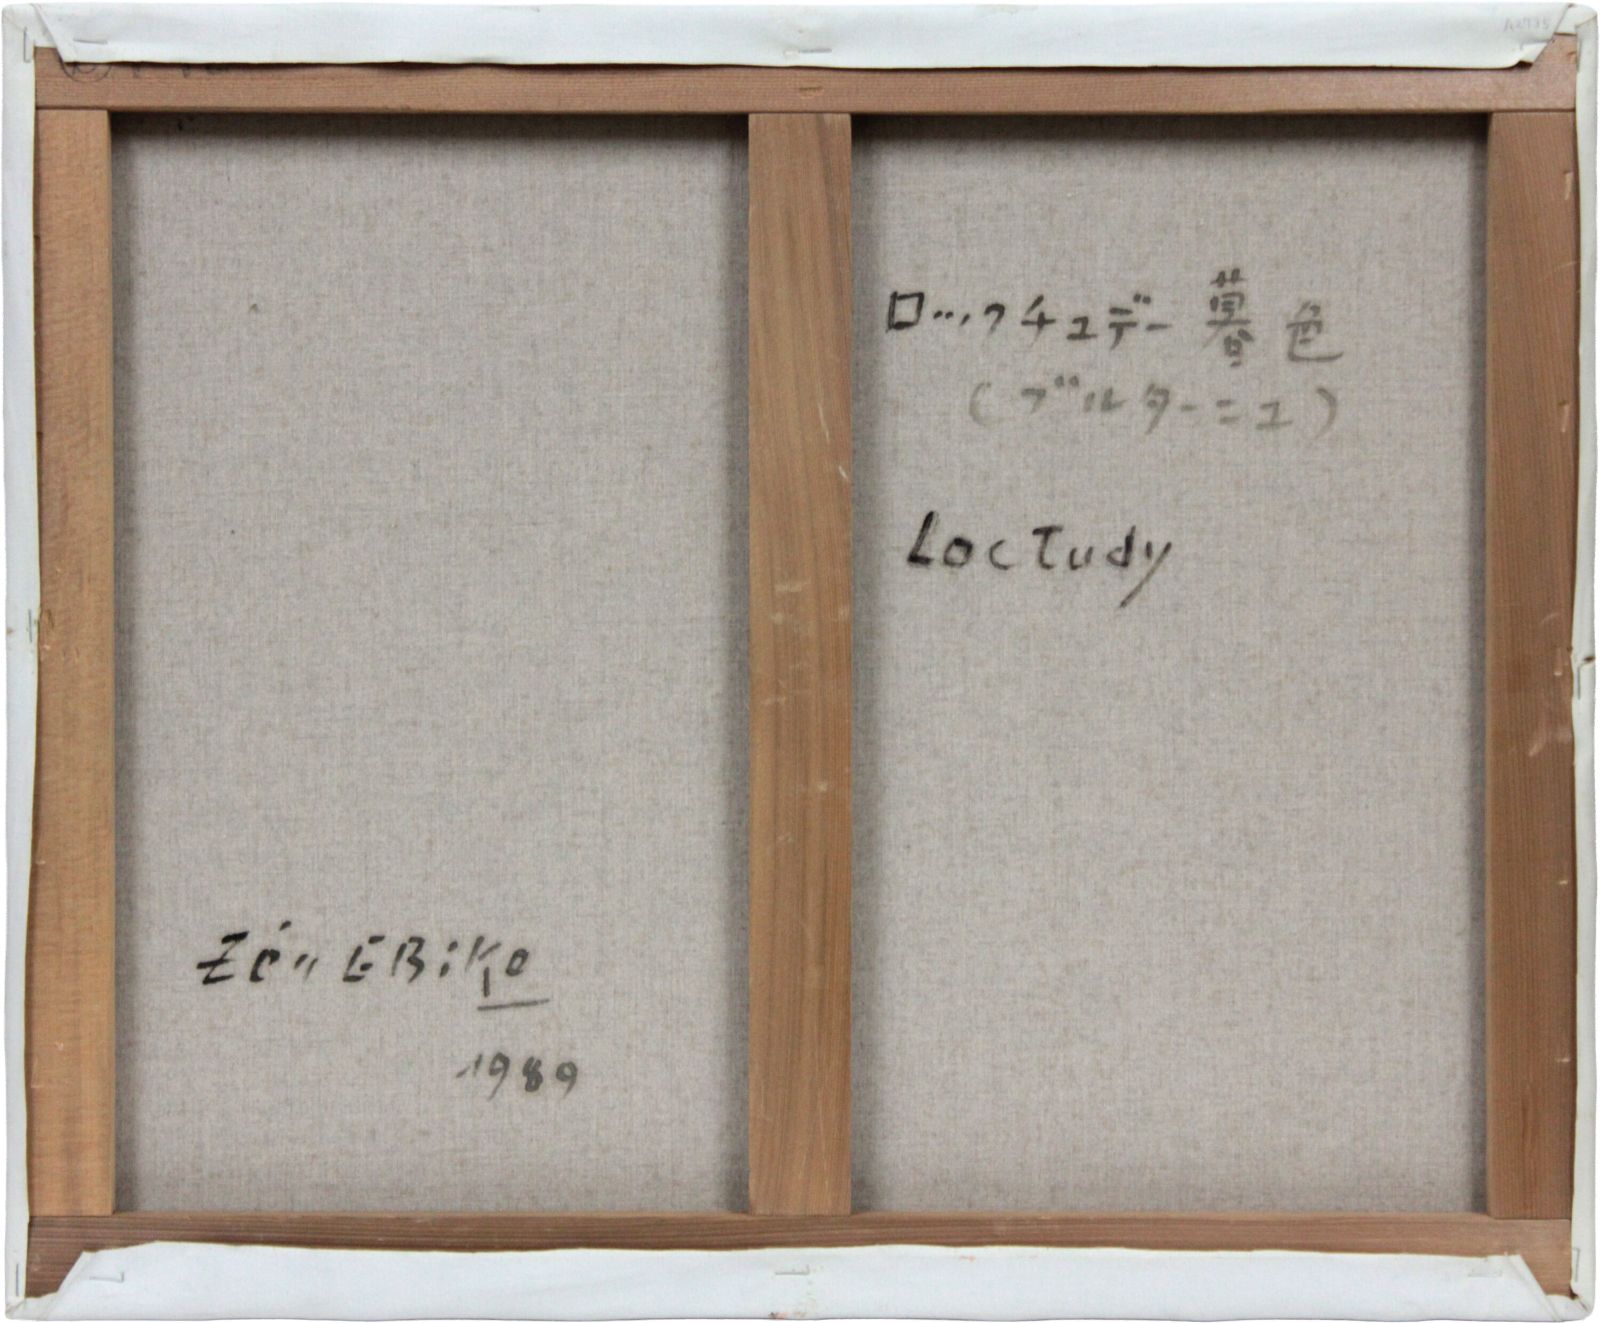 ロックチュデー 暮色
(ブルターニュ)
Loctudy
Zén EBiKo
1989